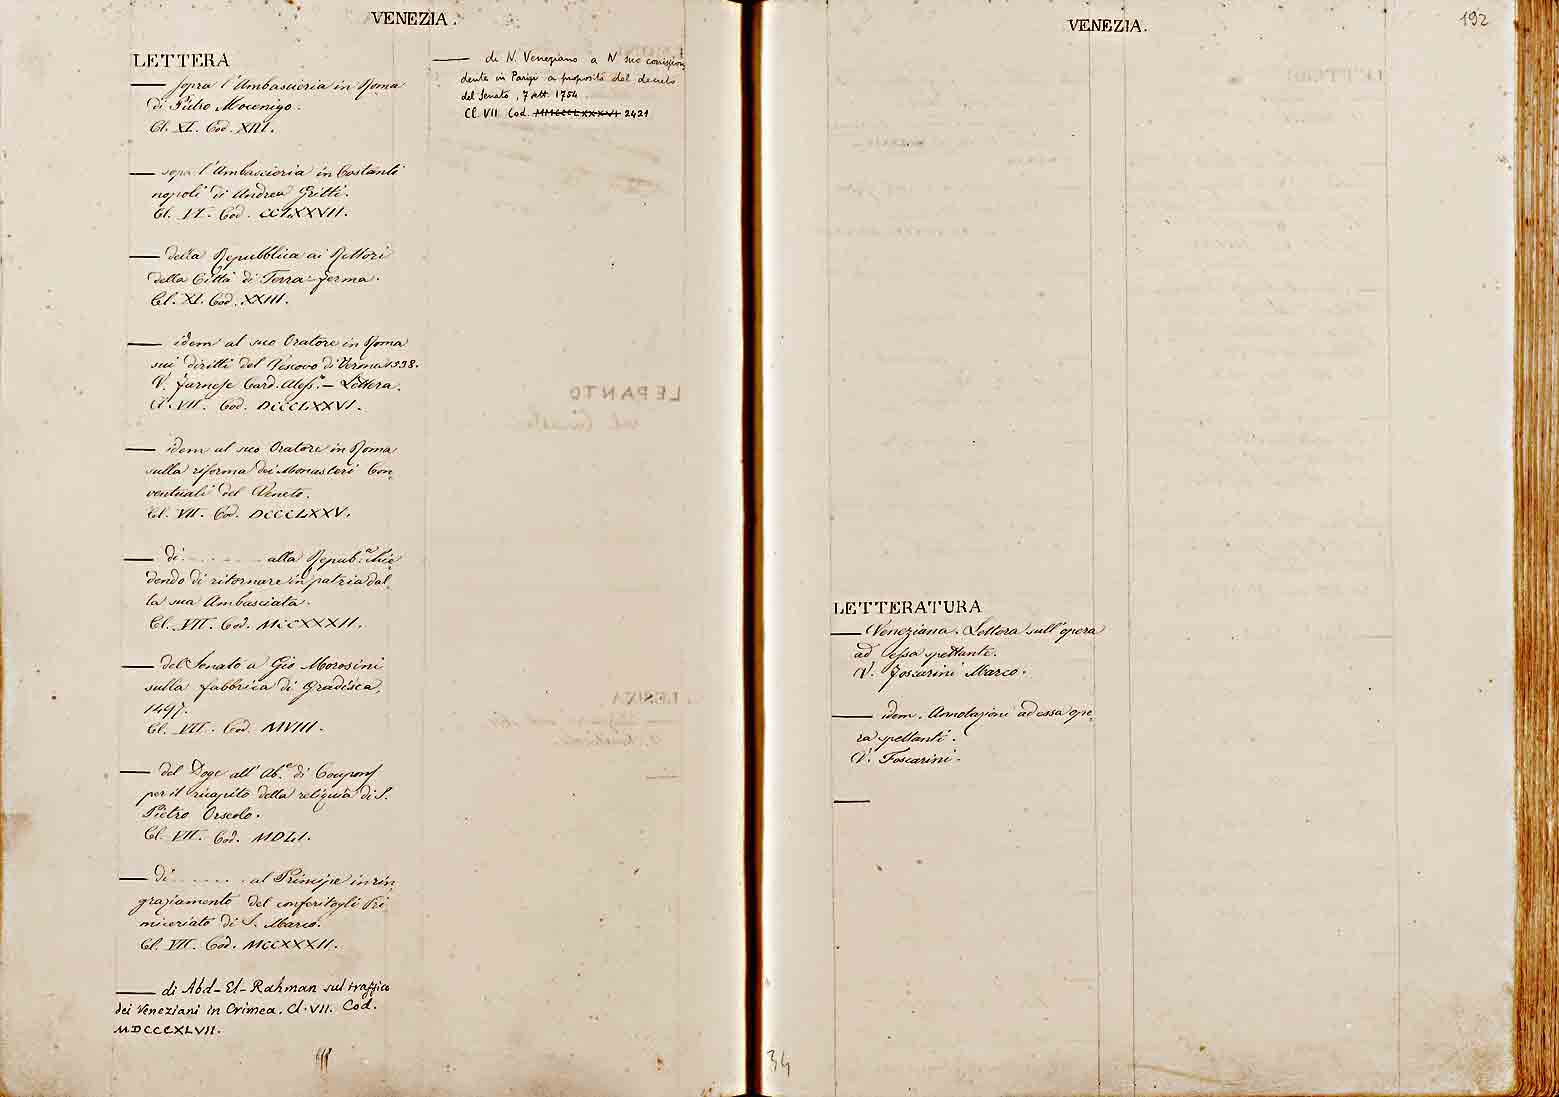 VENEZIA.
LETTERA
— sopra l'Ambascieria in Roma
di Pietro Mocenigo.
Cl. XI. Cod. XIII.
— sopra l'Ambascieria in Costanti
nopoli di Andrea Gritti.
Cl. VI. Cod. CCLXXVII.
— della Repubblica ai Rettori
della Città di Terra-ferma.
Cl. XI. Cod. XXIII.
— idem al suo Oratore in Roma
sui diritti del Vescovo di Verona 1538.
V. Farnese Card. Aless.º — Lettera.
Cl. VII. Cod. DCCCLXXVI.
— idem al suo Oratore in Roma
sulla riforma dei Monasteri Con-
ventuali del Veneto.
Cl. VII. Cod. DCCCLXXV.
— di . . . . . . . . alla Repub.ª chie-
dendo di ritornare in patria dal-
la sua Ambasciata.
Cl. VII. Cod. MCCXXXII.
— del Senato a Gio Morosini
sulla fabbrica di Gradisca,
1497.
Cl. VII. Cod. MVIII.
— del Doge all' Ab.e di
per il ricapito della reliquia di S.
Pietro Orseolo.
Cl. VII. Cod. MDLI.
— di . . . . . . . al Principe in rin-
graziamento del conferitogli Pri
miceriato di S. Marco.
Cl. VII. Cod. MCCXXXII.
— di Abd-El-Rahman sul traffico
dei Veneziani in Crimea. Cl. VII. Cod.
MDCCCXLVII.
— de N. Veneziano a N suo corrispon
dente in Parigi a proposito del decreto
del Senato, 7 sett. 1754.
Cl. VII Cod. MMCCCLXXXVI 2421
VENEZIA.
192
LETTERATURA
— Veneziana. Lettera sull'opera
ad essa spettante.
V. Foscarini Marco.
— idem. Annotazioni ad essa ope-
ra spettanti.
V. Foscarini.
—
34